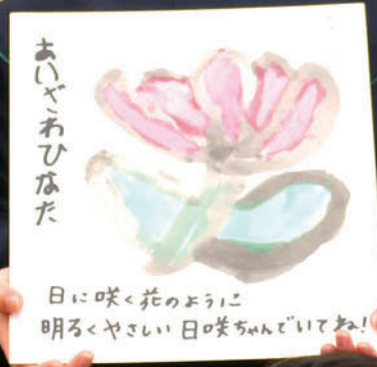 あいざわひなた
日に咲く花のように
明るくやさしい日咲ちゃんでいてね!